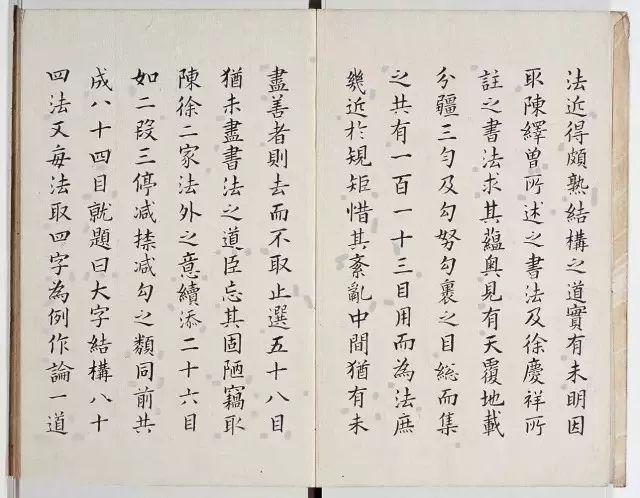 法近得頗熟結構之道實有未明因
取陳繹曾所述之書法及徐慶祥所
註之書法求其蘊奧見有天覆地載
分疆三勻及勾努勾裹之目總而集
之共有一百一十三目用而為法庶
幾近於規矩惜其紊亂中間猶有未
盡善者則去而不取止選五十八目
猶未盡書法之道臣忘其固陋竊取
陳徐二家法外之意續添二十六目
如二段三停减捺减勾之類同前共
成八十四目就題曰大字結構八十
四法又每法取四字為例作論一道